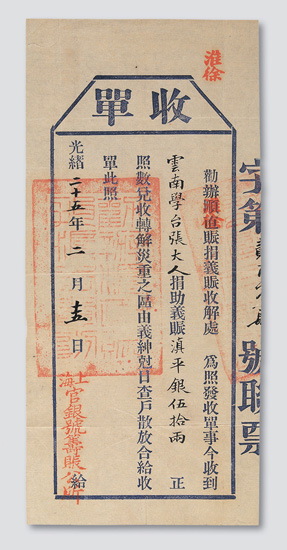 淮徐
收單
勸辦順直賑捐義賑收解處 為照發收單事今收到
雲南學台張大人捐助義賑滇平銀伍拾兩 正
照數兌收轉解災重之區由義紳尅日查戶散放合給收
單此照
光緒二十五年 二 月 十五 日
上海官銀號籌賑公所 給
字第 號聯票